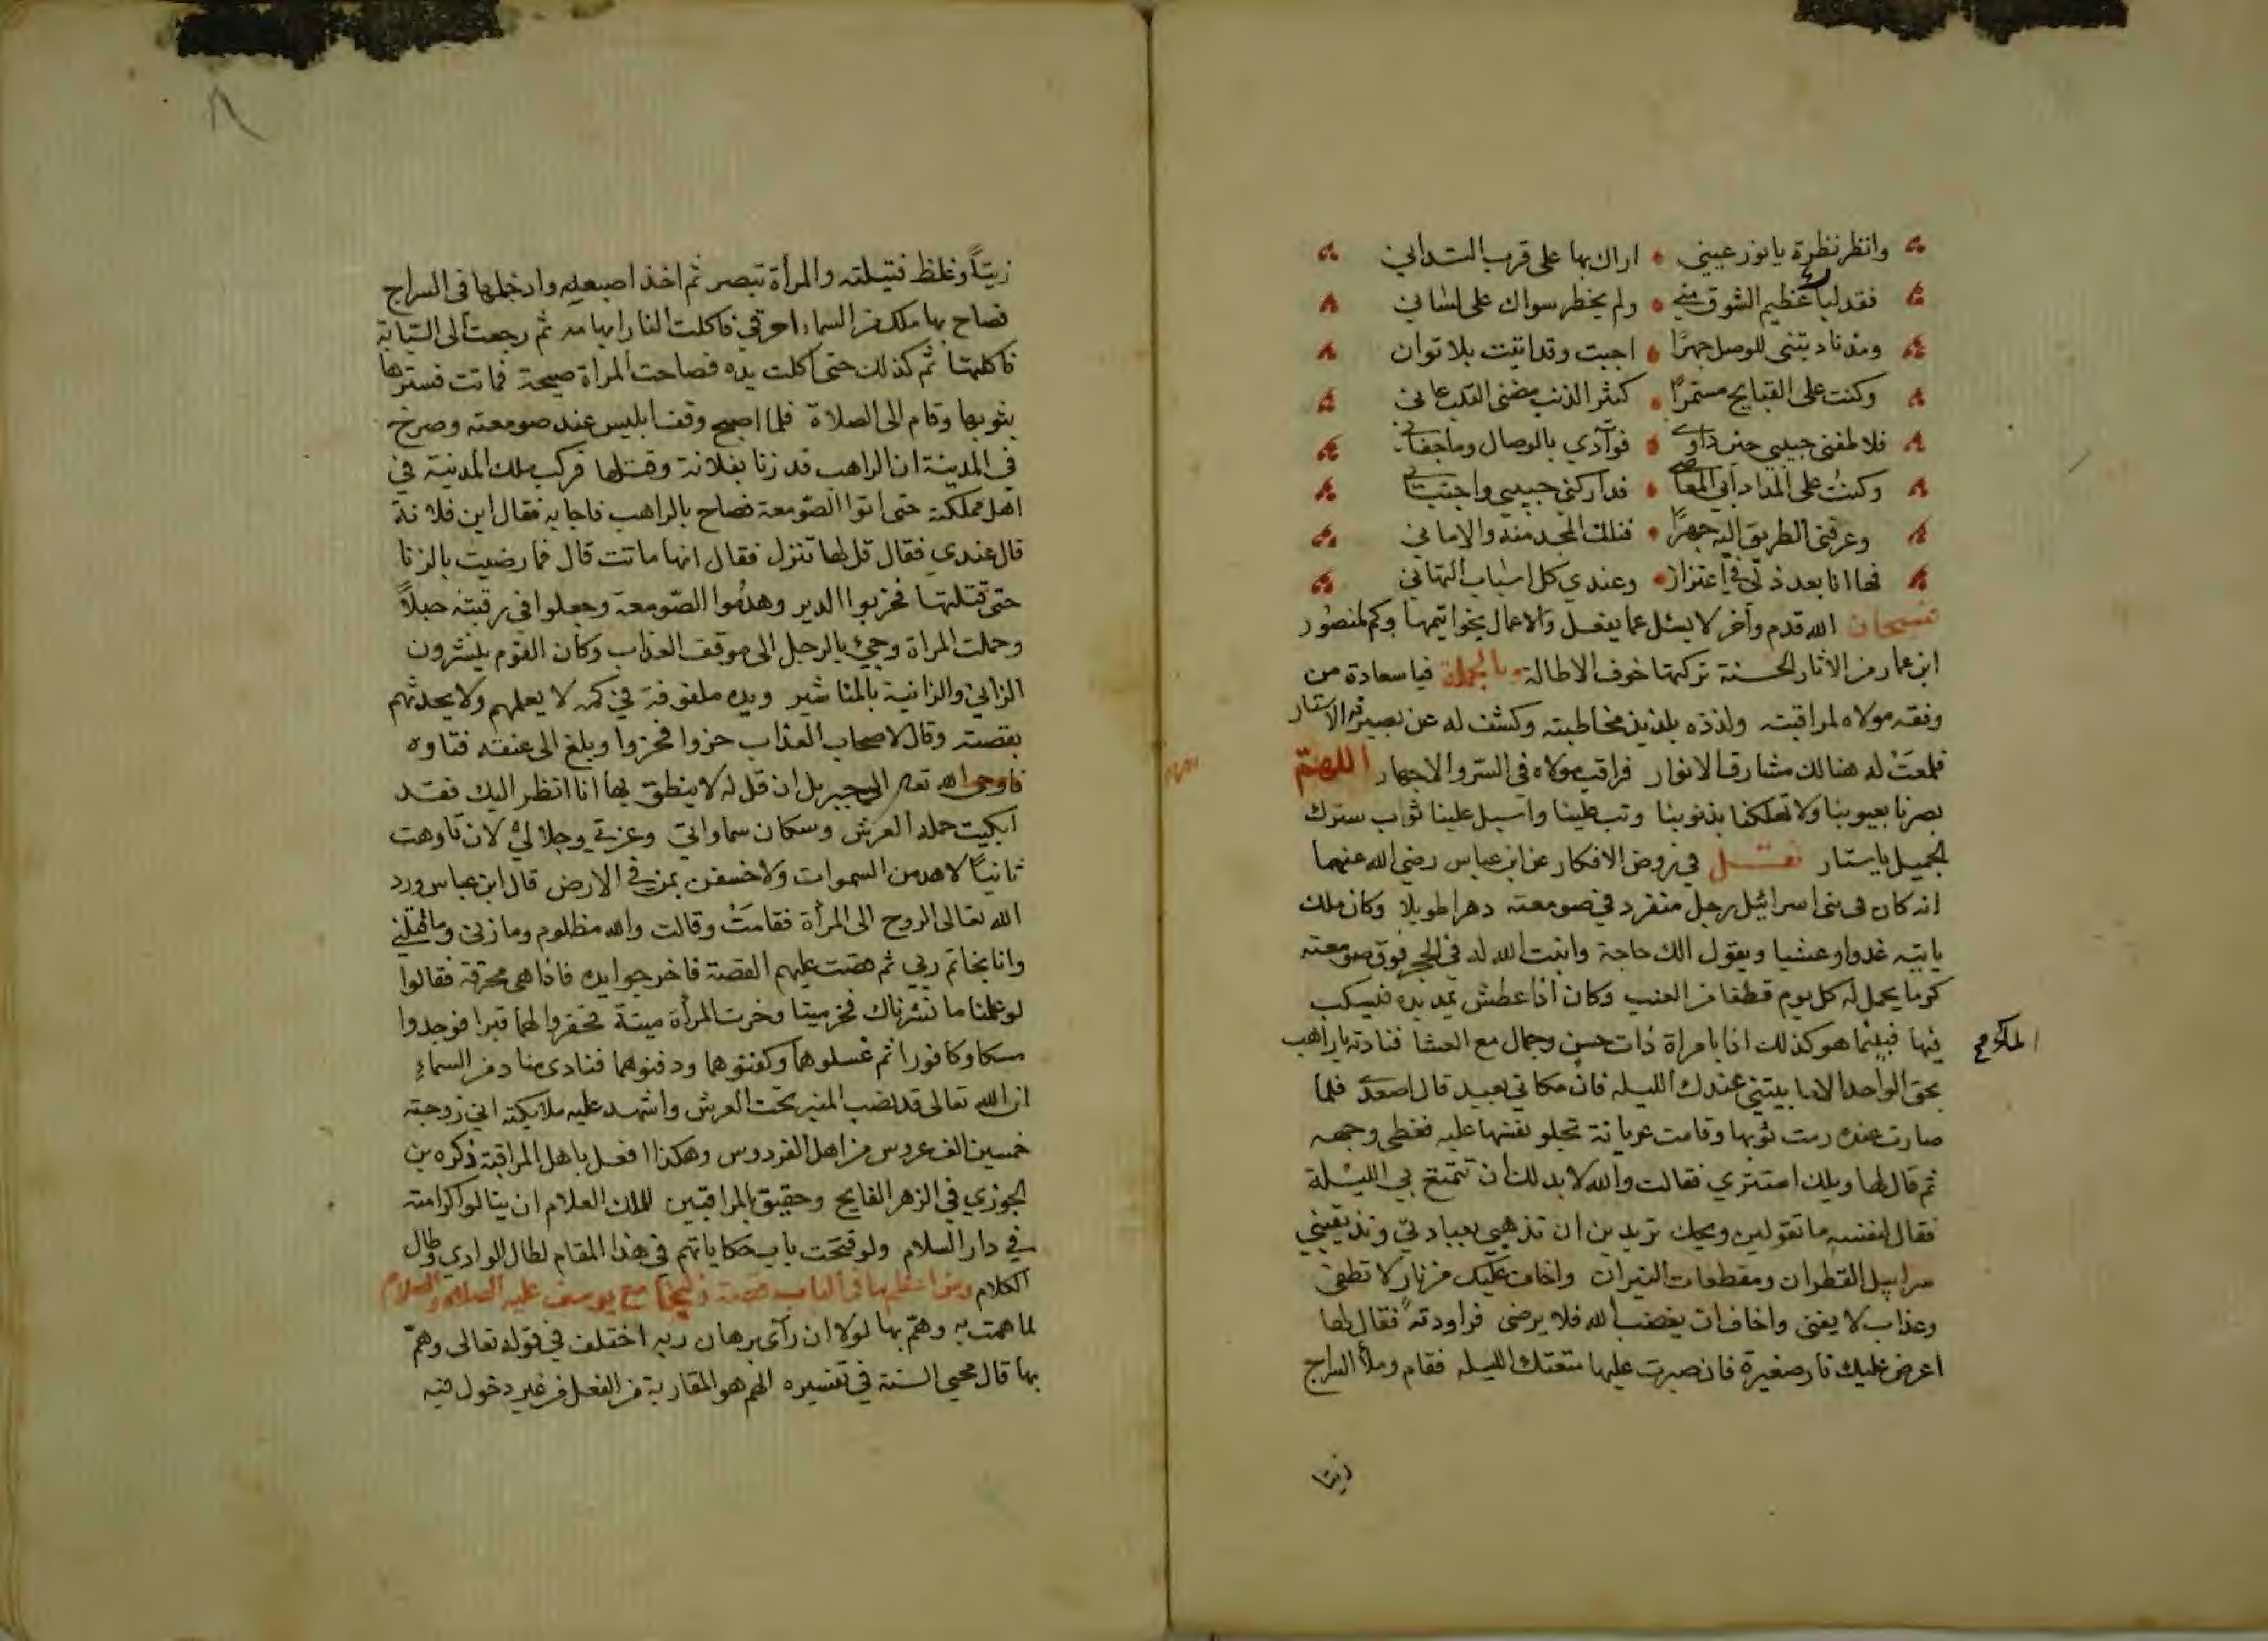 وانظر نظرة يا نور عيني • اراك بها على قرب التداني
فقد لبا عظيم الشوق مني • ولم يخطر سواك على لساني
ومذ ناديتني للوصل جهرًا • اجبت وقد اتيت بلا توان
وكنت على القبايح مستمرًا • كثير الذنب مضنى القلب عاني
فلاطفني حبيبي حين داوى • فوآدي بالوصال وما جفاني
وكنت على المدا دآبي المعاصي • فداركني حبيبي واجتباني
وعرفني الطريق اليه جهرًا • فنلت المجد منه والاماني
فها انا بعد ذلي في اعتزاز • وعندي كل اسباب التهاني
فسبحان الله قدم وأخر لا يسئل عما يفعل والاعمال بخواتيمها وكم لمنصور
ابن عمار من الآثار الحسنة تركتها خوف الاطالة وبالجملة فيا سعادة من
وفقه مولاه لمراقبته ولذذه بلذيذ مخاطبته وكشف له عن بصيرته الاستار
فلمعت له هنالك مشارق الانوار فراقب مولاه في السر والاجهار اللهم
بصرنا بعيوبنا ولا تهلكنا بذنوبنا وتب علينا واسبل علينا ثواب سترك
الجميل يا ستار نقل في روض الافكار عن ابن عباس رضي الله عنهما
انه كان في بني اسرائيل رجل منفرد في صومعته دهرا طويلا وكان ملك
ياتيه غدوا وعشيا ويقول الك حاجة وانبت الله له في الحجر فوق صومعته
كرما يحمل له كل يوم قطفا من العنب وكان اذا عطش يمد يده فيسكب
فيها فبينما هو كذلك اذا بامراة ذات حسن وجمال مع العشا فنادته يا راهب
الماء صح
بحق الواحد الا ما بيتني عندك الليله فان مكاني بعيد قال اصعدي فلما
صارت عنده رمت ثوبها وقامت عريانة تجلو نفسها عليه فغطى وجهه
ثم قال لها ويلك استتري فقالت والله لا بد لك ان تتمتع بي الليلة
فقال لنفسه ما تقولين ويحك تريدين ان تذهبي بعبادتي وتذيقيني
سرابيل القطران ومقطعات النيران واخاف عليك من نار لا تطفى
وعذاب لا يفنى واخاف ان يغضب الله فلا يرضى فراودته فقال لها
اعرض عليك نار صغيرة فان صبرت عليها متعتك الليله فقام وملأ السراج
زيتا
زيتًا وغلظ فتيلته والمرأة تبصر ثم اخذ اصبعه وادخلها في السراج
فصاح بها ملك من السماء احرقي فاكلت النار ابهامه ثم رجعت الى السبابة
فاكلتها ثم كذلك حتى اكلت يده فصاحت المراة صيحة فماتت فسترها
بثوبها وقام الى الصلاة فلما اصبح وقف ابليس عند صومعته وصرخ
في المدينة ان الراهب قد زنا بفلانة وقتلها فركب ملك المدينة في
اهل مملكته حتى اتوا الصومعة فصاح بالراهب فاجابه فقال اين فلانة
قال عندي فقال قل لها تنزل فقال انها ماتت قال فما رضيت بالزنا
حتى قتلتها فخربوا الدير وهدموا الصومعة وجعلوا في رقبته حبلاً
وحملت المراة وجيئ بالرجل الى موقف العذاب وكان القوم ينشرون
الزاني والزانية بالمناشير ويده ملفوفة في كمه لا يعلمهم ولا يحدثهم
بقصته وقال لاصحاب العذاب حزوا فحزوا وبلغ الى عنقه فتاوه
فاوحى الله تعالى الى جبريل ان قل له لا ينطق بها انا انظر اليك فقد
ابكيت حملة العرش وسكان سماواتي وعزتي وجلالي لان تاوهت
ثانيًا لاهدمن السموات ولاخسفن بمن في الارض قال ابن عباس ورد
الله تعالى الروح الى المرأة فقامت وقالت والله مظلوم وما زنى وما قتلني
وانا بخاتم ربي ثم قصت عليهم القصة فاخرجوا يده فاذا هي محرقة فقالوا
لو علمنا ما نشرناك فخر ميتا وخرت المرأة ميتة فحفروا لهما قبرا فوجدوا
مسكا وكافورا ثم غسلوهما وكفنوهما ودفنوهما فنادى مناد من السماء
ان الله تعالى قد نصب المنبر تحت العرش واشهد عليه ملايكته اني زوجته
خمسين الف عروس من اهل الفردوس وهكذا افعل باهل المراقبة ذكره بن
الجوزي في الزهر الفايح وحقيق بالمراقبين للملك العلام ان ينالوا كرامته
في دار السلام ولو فتحت باب حكاياتهم في هذا المقام لطال الوادي وطال
الكلام ومن اعظمها في الباب قصة زليخا مع يوسف عليه الصلاة والسلام
لما همت به وهم بها لولا ان رآى برهان ربه اختلف في قوله تعالى وهمّ
بها قال محيي السنة في تفسيره الهم هو المقاربة من الفعل من غير دخول فيه